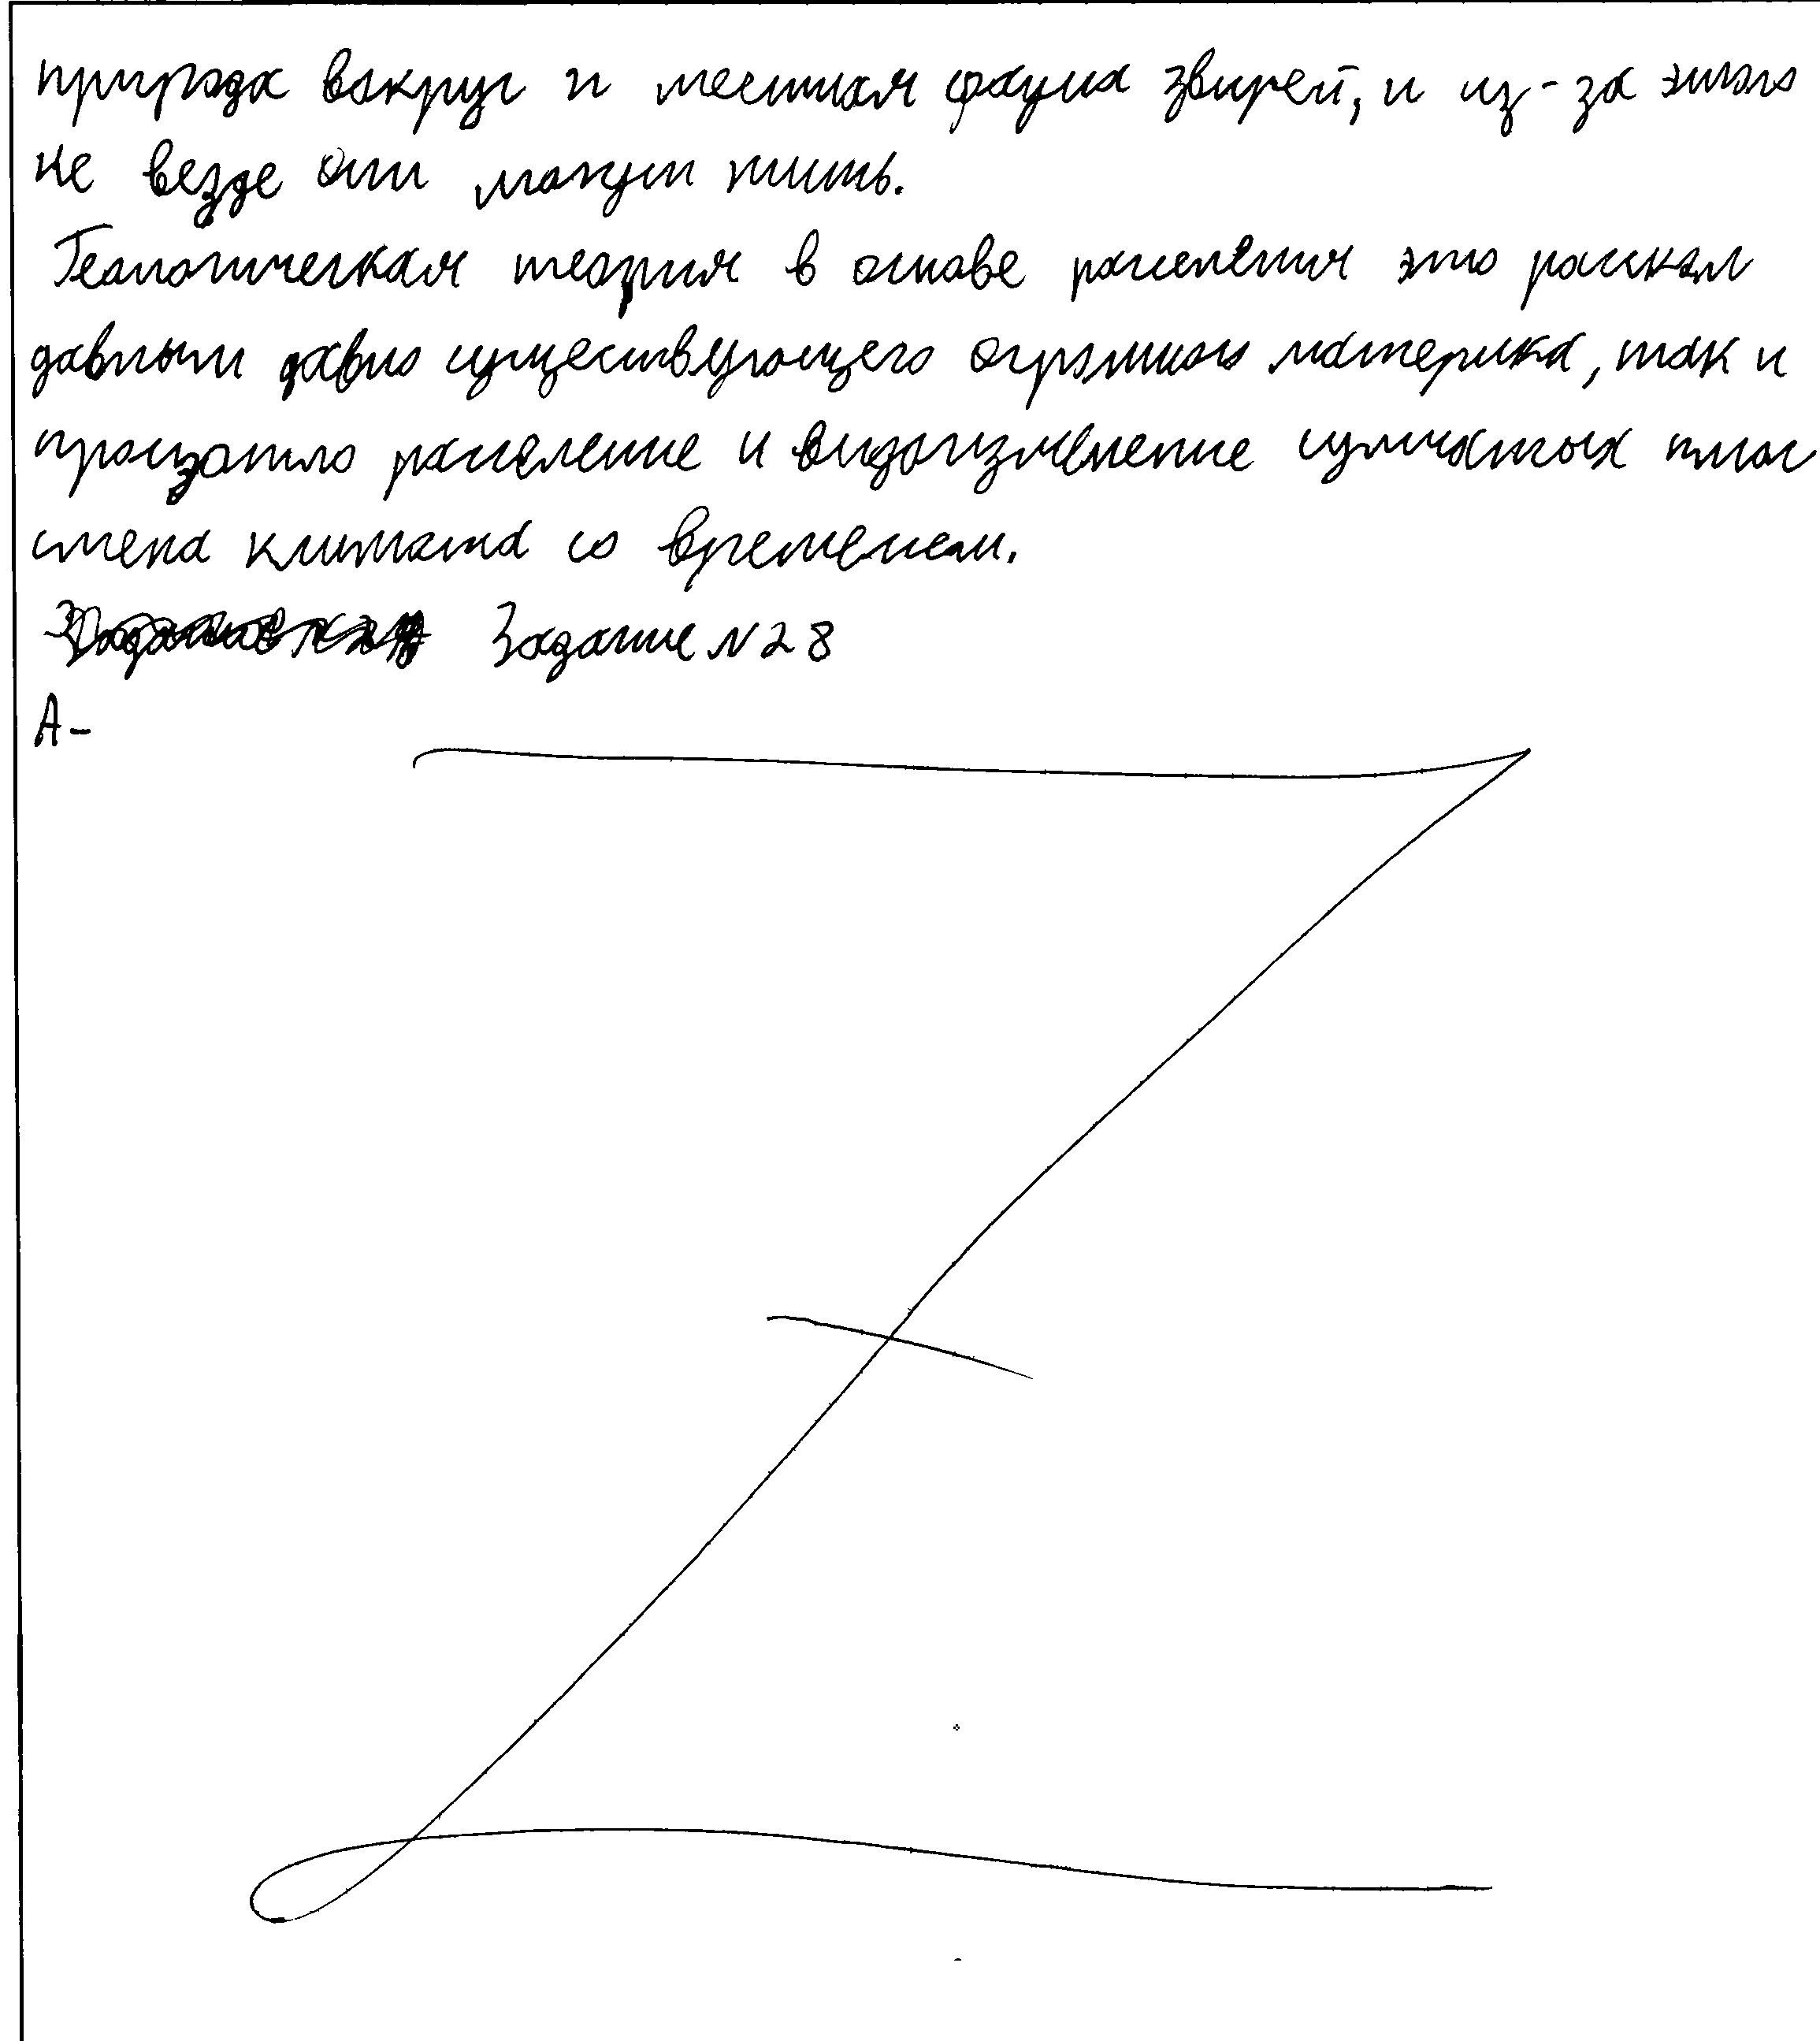 природа вокруг и местная фауна зверей, и из-за этого
не везде они могут жить.
Геологическая теория в основе расселения это раскол
давным давно существующего огромного материка, так и
произошло расселение и видоизменение сумчатых плюс
смена климата со временем.
Задание №28
А-